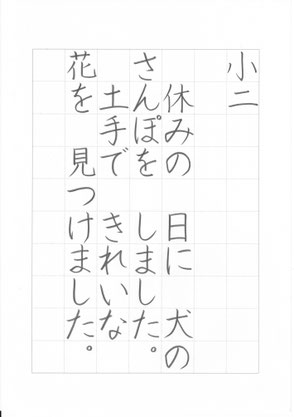 小二
休みの 日に 犬の
さんぽを しました。
土手で きれいな
花を 見つけました。